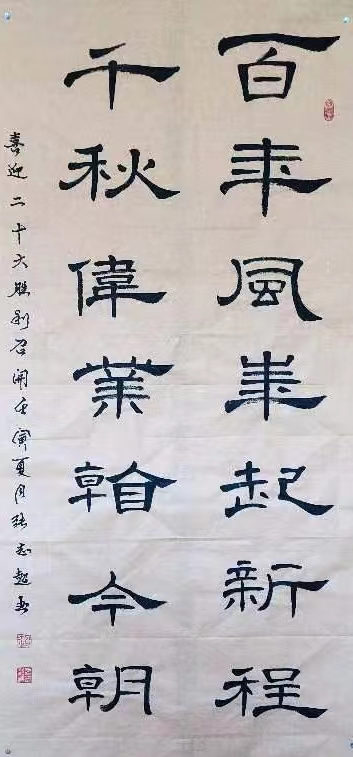 百年風華起新程
千秋偉業看今朝
喜迎二十大勝利召開壬寅夏月張志超書